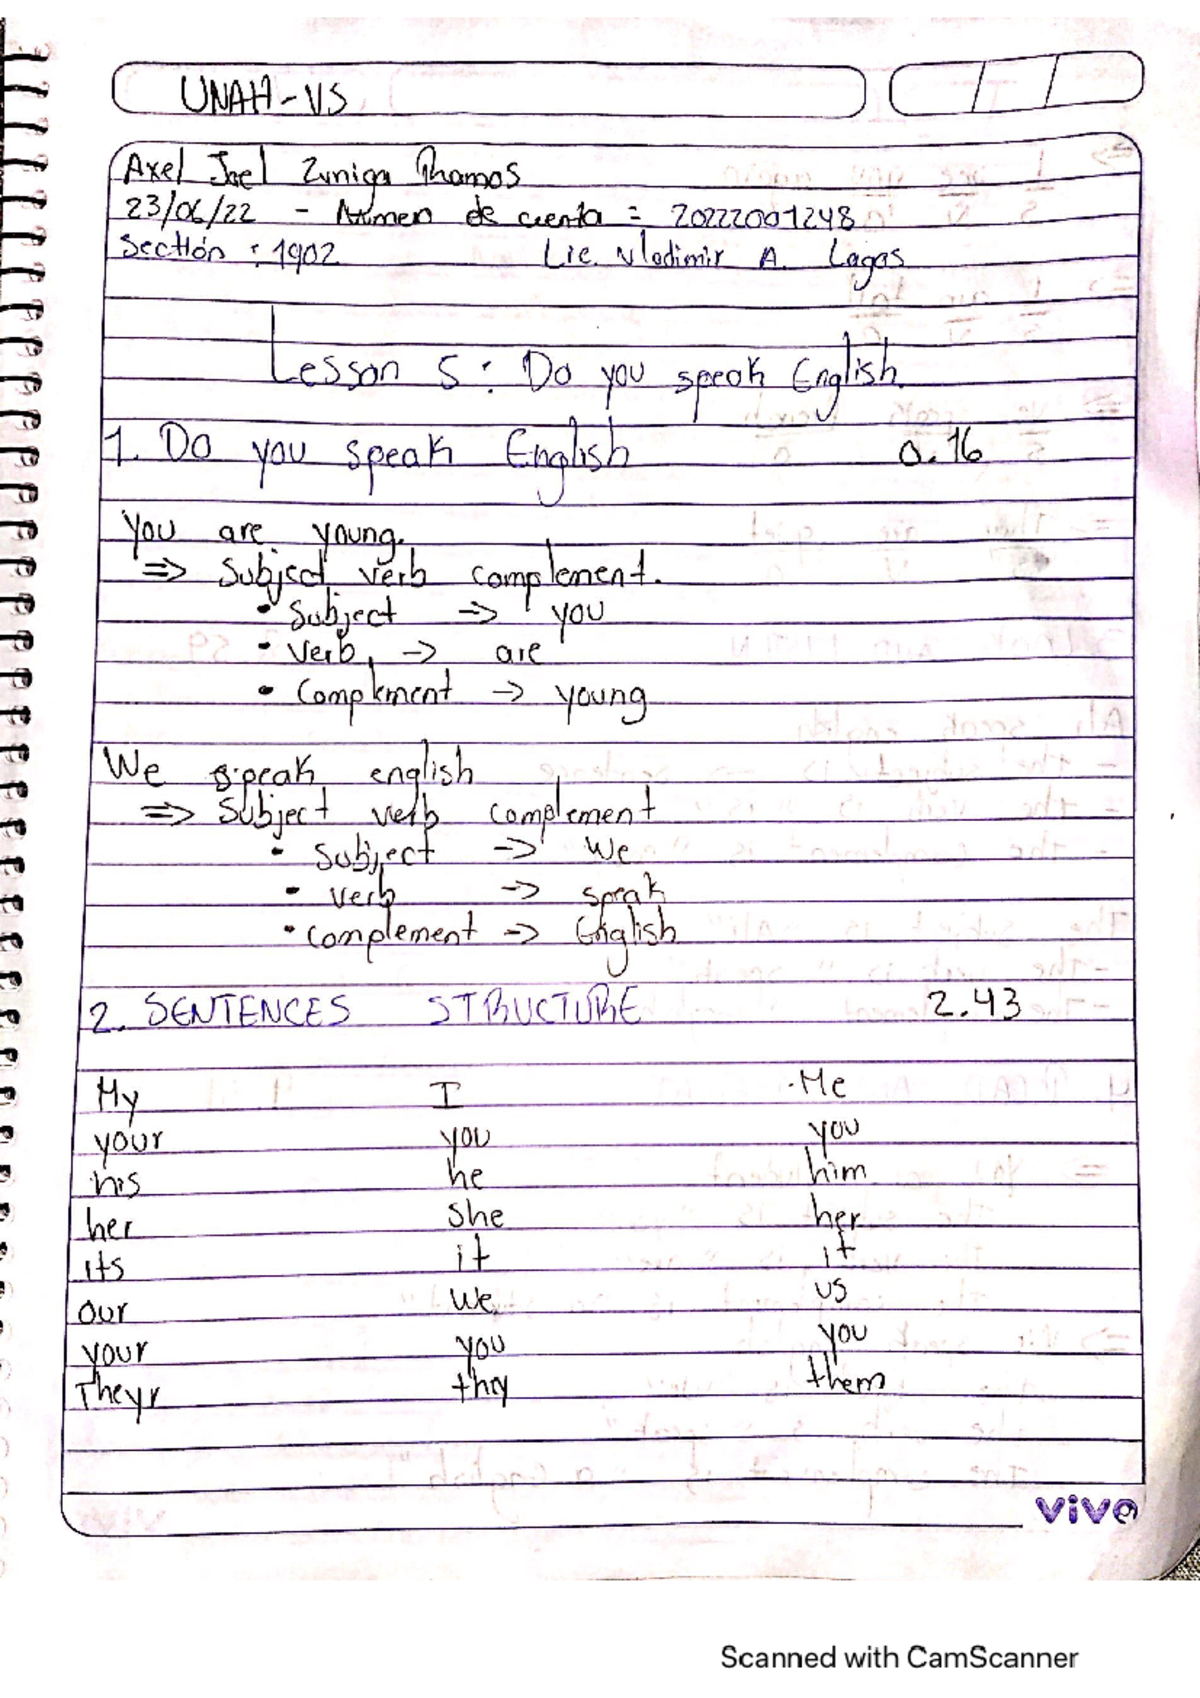 UNAH-VS
Axel Joel Zuniga Thomas
23/06/22 - Numero de cuenta = 20222001248
Secttión : 1902 Lic. Vladimir A. Lagos
Lesson 5: Do you speak English
1. Do you speak English 0.16
You are young.
=> Subject verb complement.
• Subject => you
• Verb, -> are
• Complement -> young
We speak english
=> Subject verb complement
• Subject -> We
• verb -> speak
• complement -> English
2. SENTENCES STRUCTURE 2.43
My I Me
your you you
his he him
her She her
its it it
our We us
your you you
Theyr they them
vivo
Scanned with CamScanner